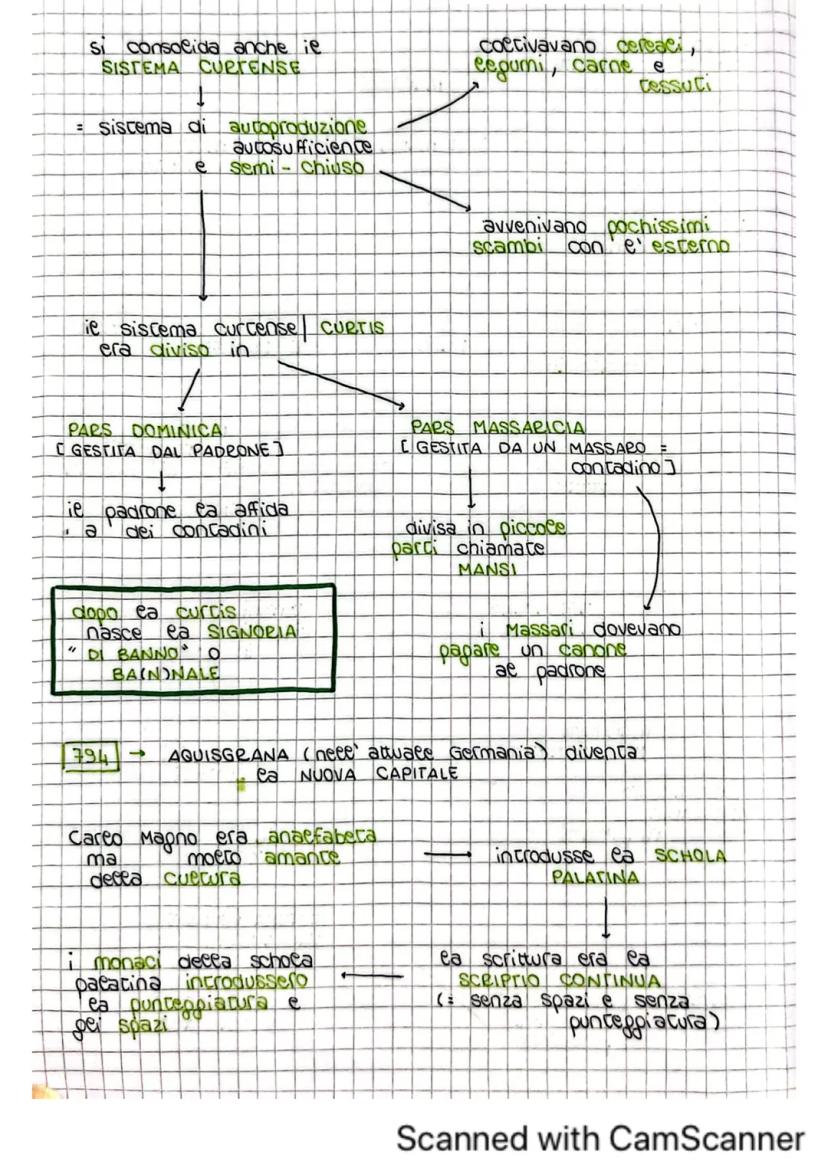 si consolida anche il
SISTEMA CURTENSE
= sistema di autoproduzione
autosufficiente
e semi-chiuso
coltivavano cereali,
legumi, carne e
tessuti
avvenivano pochissimi
scambi con l'esterno
il sistema curtense| CURTIS
era diviso in
PARS DOMINICA
[GESTITA DAL PADRONE]
il padrone la affida
a dei contadini
PARS MASSARICIA
[GESTITA DA UN MASSARO =
contadino]
divisa in piccole
parti chiamate
MANSI
i Massari dovevano
pagare un canone
al padrone
dopo la curtis
nasce la SIGNORIA
"DI BANNO" o
BA(N)NALE
794 → AQUISGRANA (nell'attuale Germania) diventa
la NUOVA CAPITALE
Carlo Magno era analfabeta
ma molto amante
della cultura
introdusse la SCHOLA
PALATINA
la scrittura era la
SCRIPTIO CONTINUA
(= senza spazi e senza
punteggiatura)
i monaci della schola
palatina introdussero
la punteggiatura e
gli spazi
Scanned with CamScanner